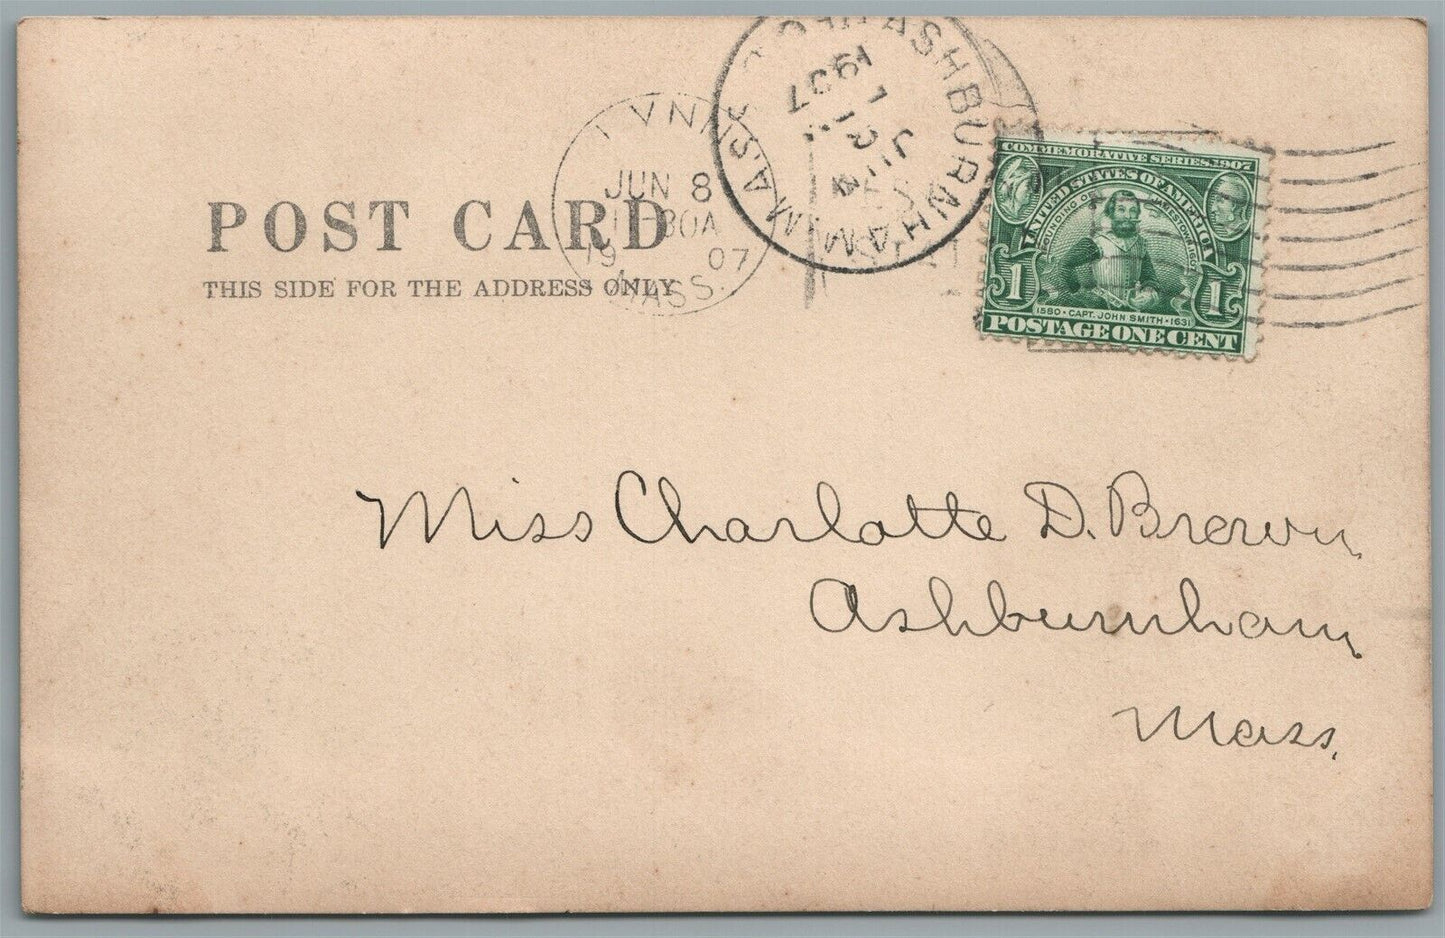 POST CARD
THIS SIDE FOR THE ADDRESS ONLY
LYNN
JUN 8
30A
19 07
MASS.
ASHBURNHAM MASS.
1907
COMMEMORATIVE SERIES 1907
UNITED STATES OF AMERICA
FOUNDING OF JAMESTOWN 1607
1 1
1580 • CAPT. JOHN SMITH • 1631
POSTAGE ONE CENT
Miss Charlotte D. Brown,
Ashburnham,
Mass.